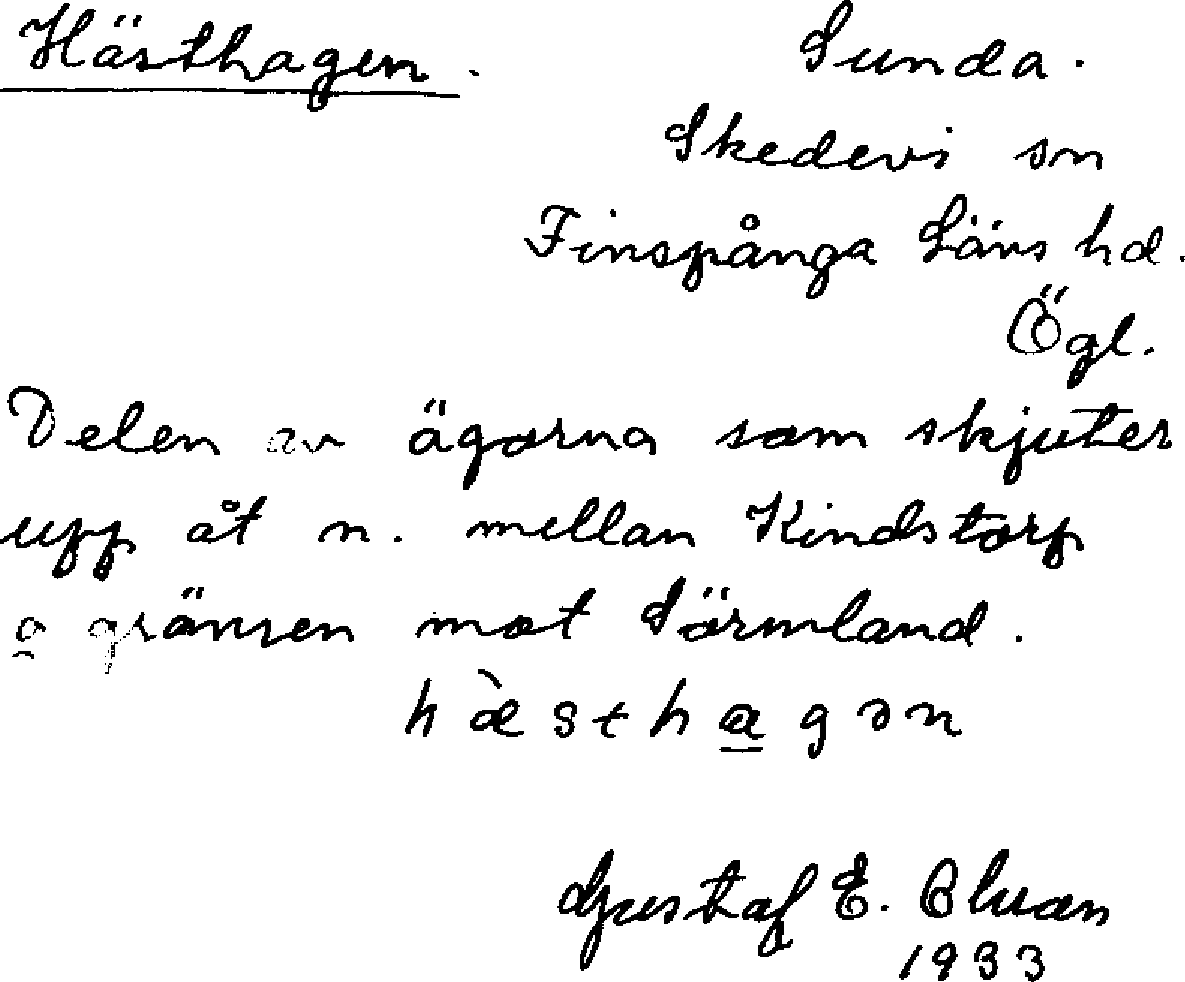 Hästhagen. Sunda.
Skedevi sn
Finspånga Läns hd.
Ögl.
Delen av ägorna som skjuter
upp åt n. mellan Kindstorp
o gränsen mot Sörmland.
hæ̀sthagən
Gustaf E.
1933